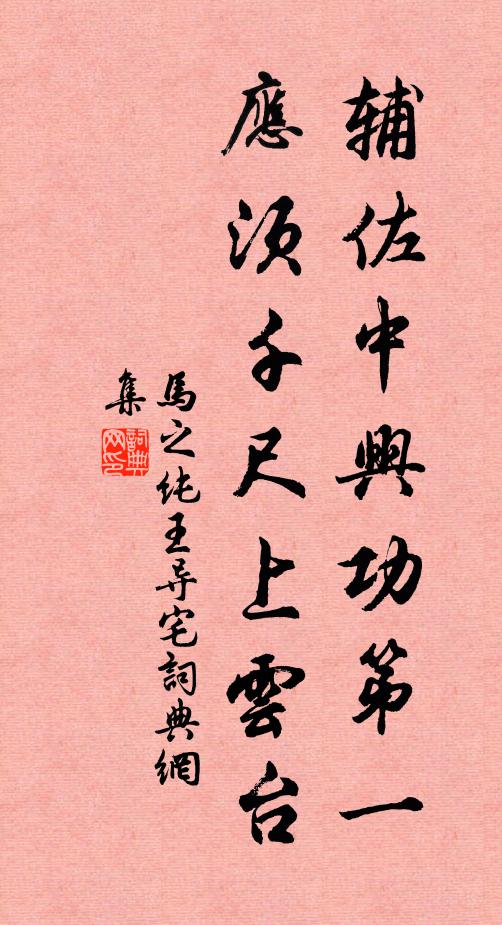 輔佐中興功第一
應須千尺上雲台
馬之純王导宅詞典網
集
詞典网印